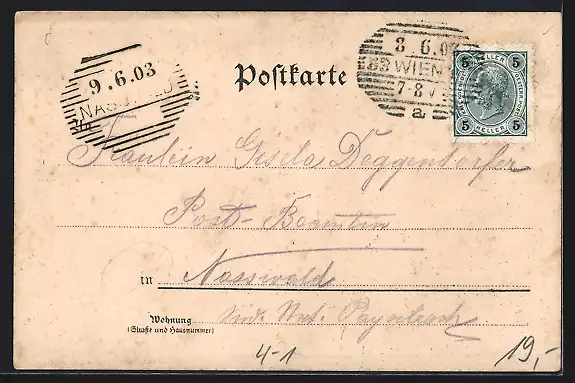 8
9.6.03
NASSWALD
Postkarte
8.6.03
WIEN
7-8V
a
5 HELLER 5
5 HELLER 5
Fräulein Gisela Deggendorfer
Post-Beamtin
in Nasswald
Wohnung
(Straße und Hausnummer)
Süd. Stat. Payerbach
4-1
19,-